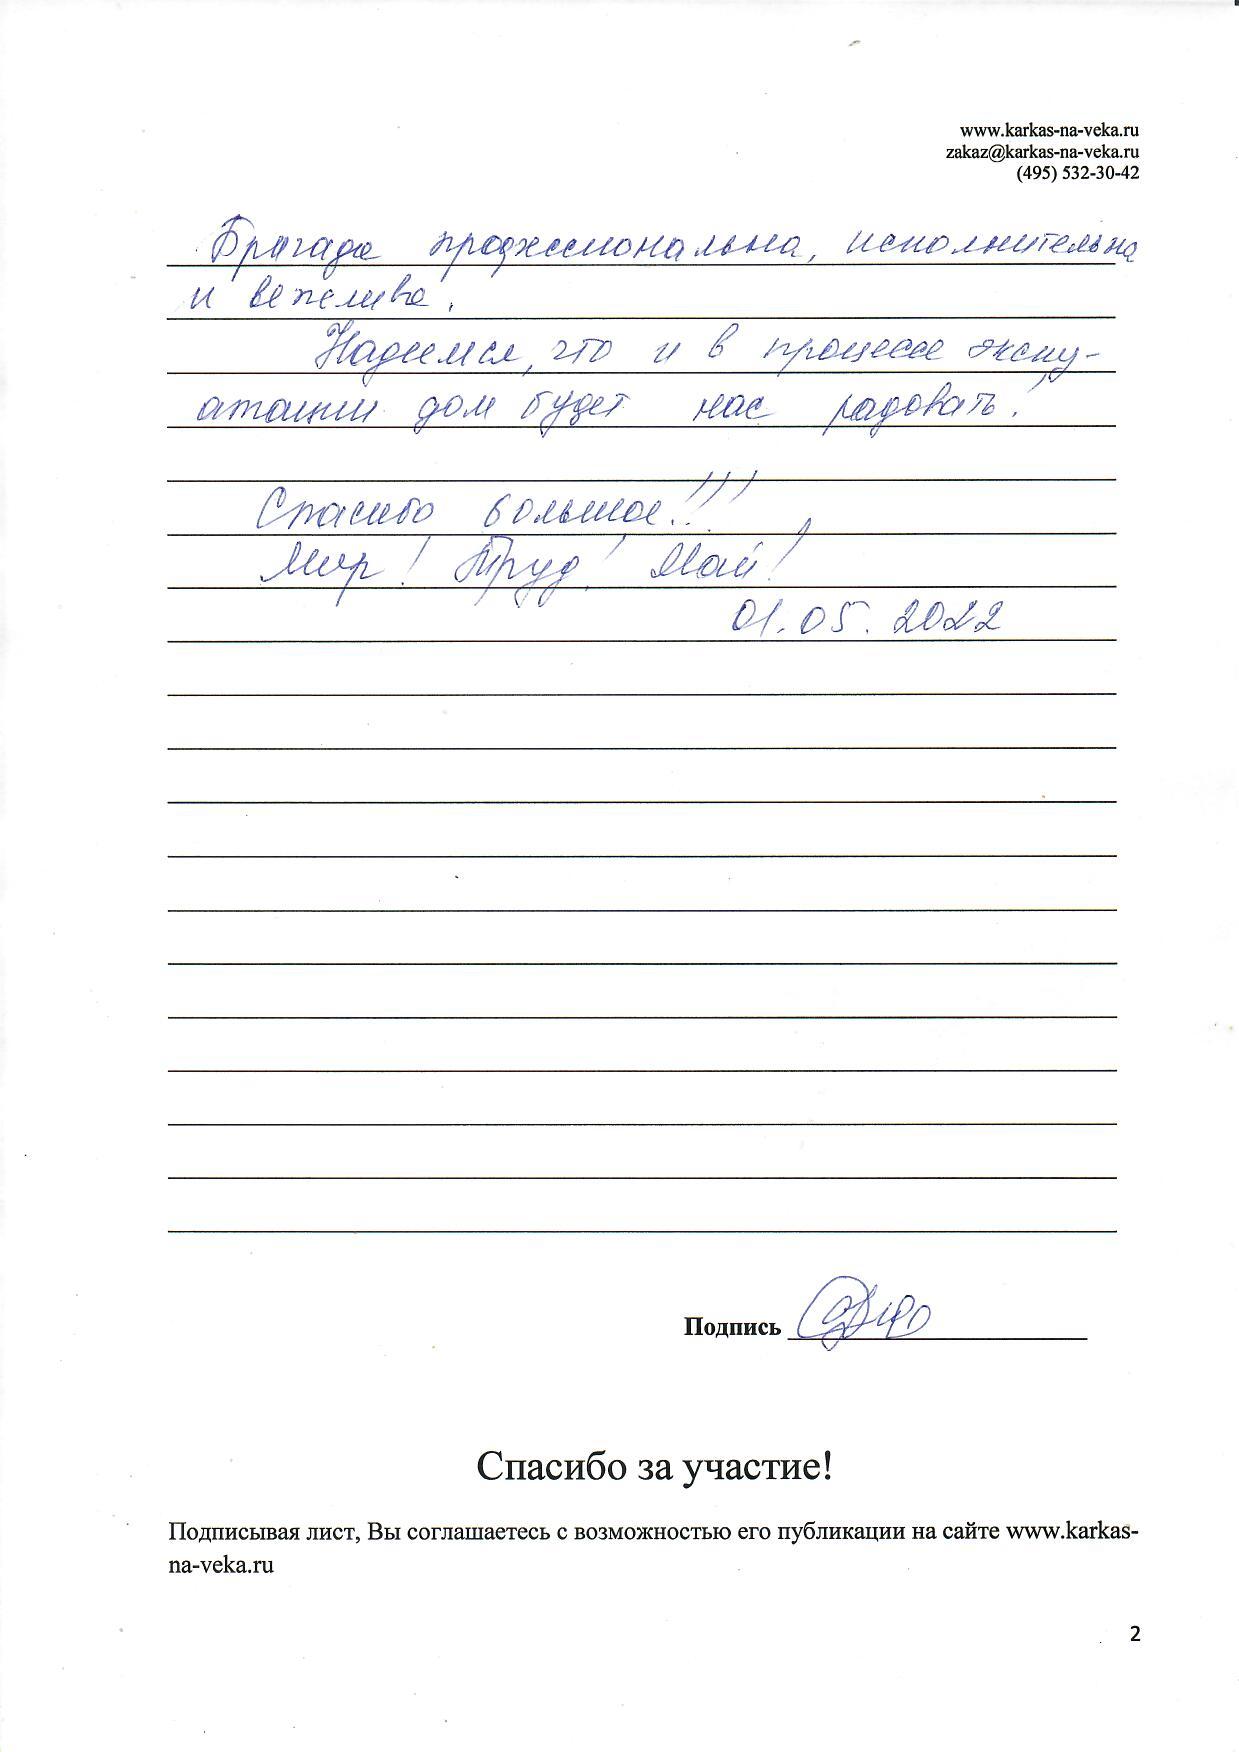 www.karkas-na-veka.ru
zakaz@karkas-na-veka.ru
(495) 532-30-42
Бригада профессиональна, исполнительна
и вежлива.
Надеемся, что и в процессе экспу-
атации дом будет нас радовать!
Спасибо большое!!!
Мир! Труд! Май!
01.05.2022
Подпись
Спасибо за участие!
Подписывая лист, Вы соглашаетесь с возможностью его публикации на сайте www.karkas-
na-veka.ru
2